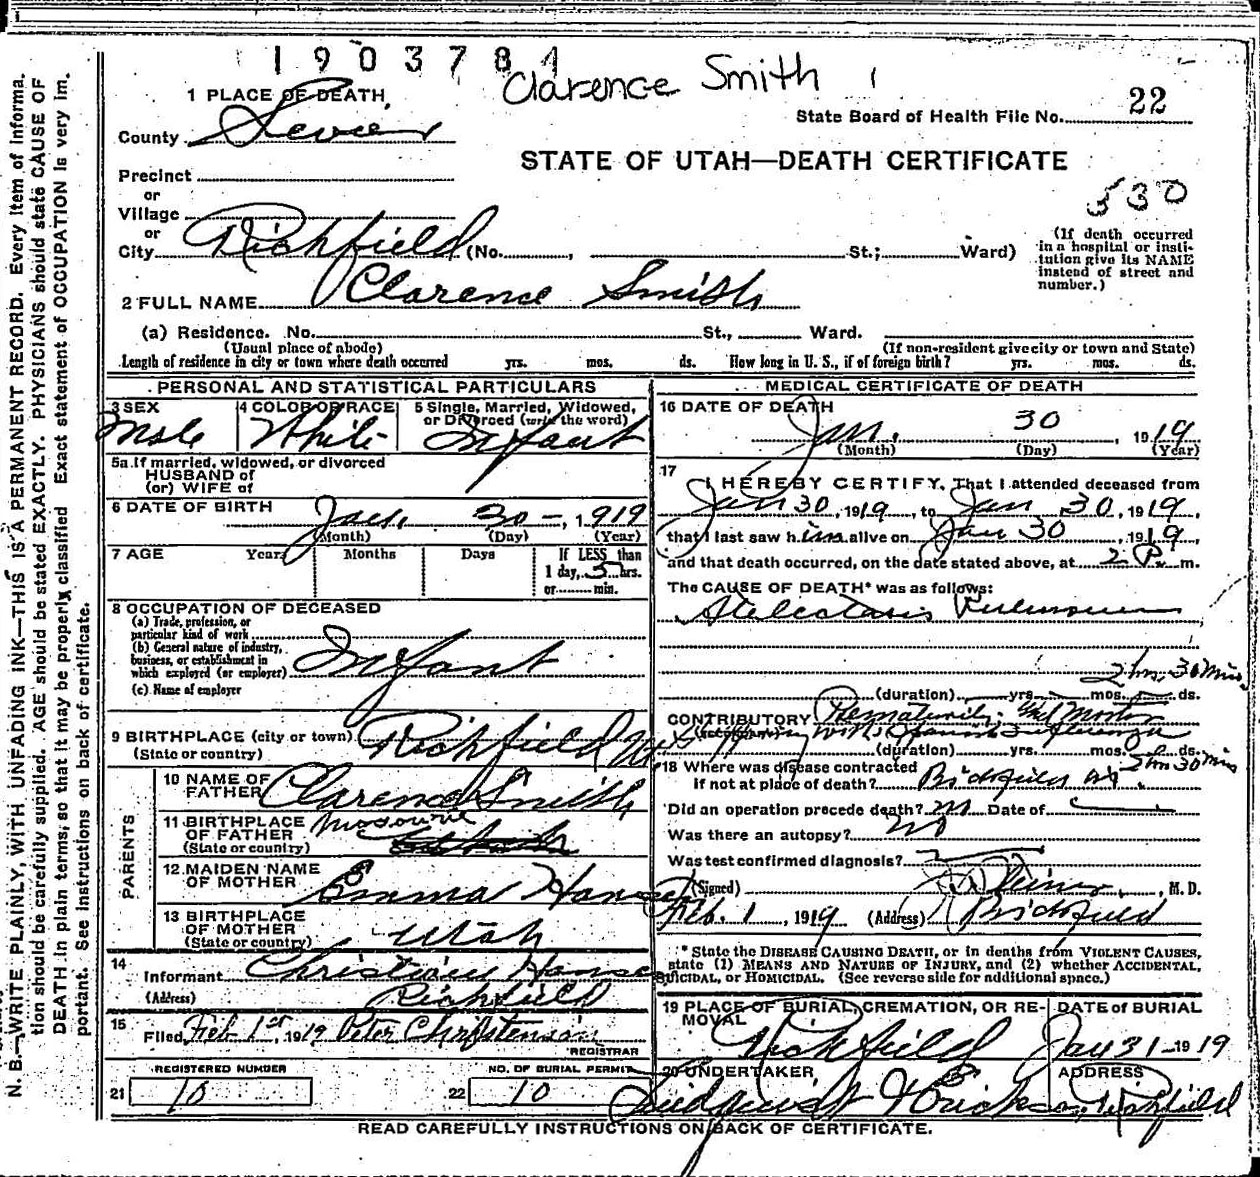 1903784
Clarence Smith
1 PLACE OF DEATH,
County Sevier
State Board of Health File No. 22
STATE OF UTAH—DEATH CERTIFICATE
Precinct
or
Village
or
City Richfield (No. , St.; Ward)
530
(If death occurred
in a hospital or insti-
tution give its NAME
instead of street and
number.)
2 FULL NAME Clarence Smith
(a) Residence. No. St., Ward.
(Usual place of abode) (If non-resident give city or town and State)
Length of residence in city or town where death occurred yrs. mos. ds. How long in U. S., if of foreign birth? yrs. mos. ds.
PERSONAL AND STATISTICAL PARTICULARS
3 SEX Male
4 COLOR OR RACE White
5 Single, Married, Widowed,
or Divorced (write the word)
Infant
5a If married, widowed, or divorced
HUSBAND of
(or) WIFE of
6 DATE OF BIRTH Jan. 30 - , 1919
(Month) (Day) (Year)
7 AGE Years Months Days If LESS than
1 day, 5 hrs.
or min.
8 OCCUPATION OF DECEASED
(a) Trade, profession, or
particular kind of work
(b) General nature of industry,
business, or establishment in
which employed (or employer) Infant
(c) Name of employer
9 BIRTHPLACE (city or town) Richfield
(State or country)
PARENTS
10 NAME OF
FATHER Clarence Smith
11 BIRTHPLACE
OF FATHER Missouri
(State or country)
12 MAIDEN NAME
OF MOTHER Emma Hansen
13 BIRTHPLACE
OF MOTHER
(State or country) Utah
14
Informant Hansen
(Address) Richfield
15
Filed Feb 1st, 1919 Peter Christenson
REGISTRAR
REGISTERED NUMBER
21 10
NO. OF BURIAL PERMIT
22 10
MEDICAL CERTIFICATE OF DEATH
16 DATE OF DEATH
Jan. 30 , 1919
(Month) (Day) (Year)
17
I HEREBY CERTIFY, That I attended deceased from
Jan 30, 1919, to Jan 30, 1919,
that I last saw him alive on Jan 30, 1919,
and that death occurred, on the date stated above, at 2 P. m.
The CAUSE OF DEATH* was as follows:
2 hrs. 30 Mins
(duration) yrs. mos. ds.
CONTRIBUTORY Prematurity: and Mother
(Secondary) with Spanish Influenza
(duration) yrs. mos. ds.
2 hrs 30 Min
18 Where was disease contracted
if not at place of death? Richfield
Did an operation precede death? No Date of
Was there an autopsy? No
Was test confirmed diagnosis?
(Signed) , M. D.
Feb. 1, 1919 (Address) Richfield
* State the DISEASE CAUSING DEATH, or in deaths from VIOLENT CAUSES,
state (1) MEANS AND NATURE OF INJURY, and (2) whether ACCIDENTAL,
SUICIDAL, or HOMICIDAL. (See reverse side for additional space.)
19 PLACE OF BURIAL, CREMATION, OR RE-
MOVAL
Richfield
DATE of BURIAL
Jan 31 - 1919
20 UNDERTAKER
ADDRESS
Richfield
READ CAREFULLY INSTRUCTIONS ON BACK OF CERTIFICATE.
N. B.—WRITE PLAINLY, WITH UNFADING INK—THIS IS A PERMANENT RECORD. Every item of informa-
tion should be carefully supplied. AGE should be stated EXACTLY. PHYSICIANS should state CAUSE OF
DEATH in plain terms, so that it may be properly classified. Exact statement of OCCUPATION is very im-
portant. See instructions on back of certificate.